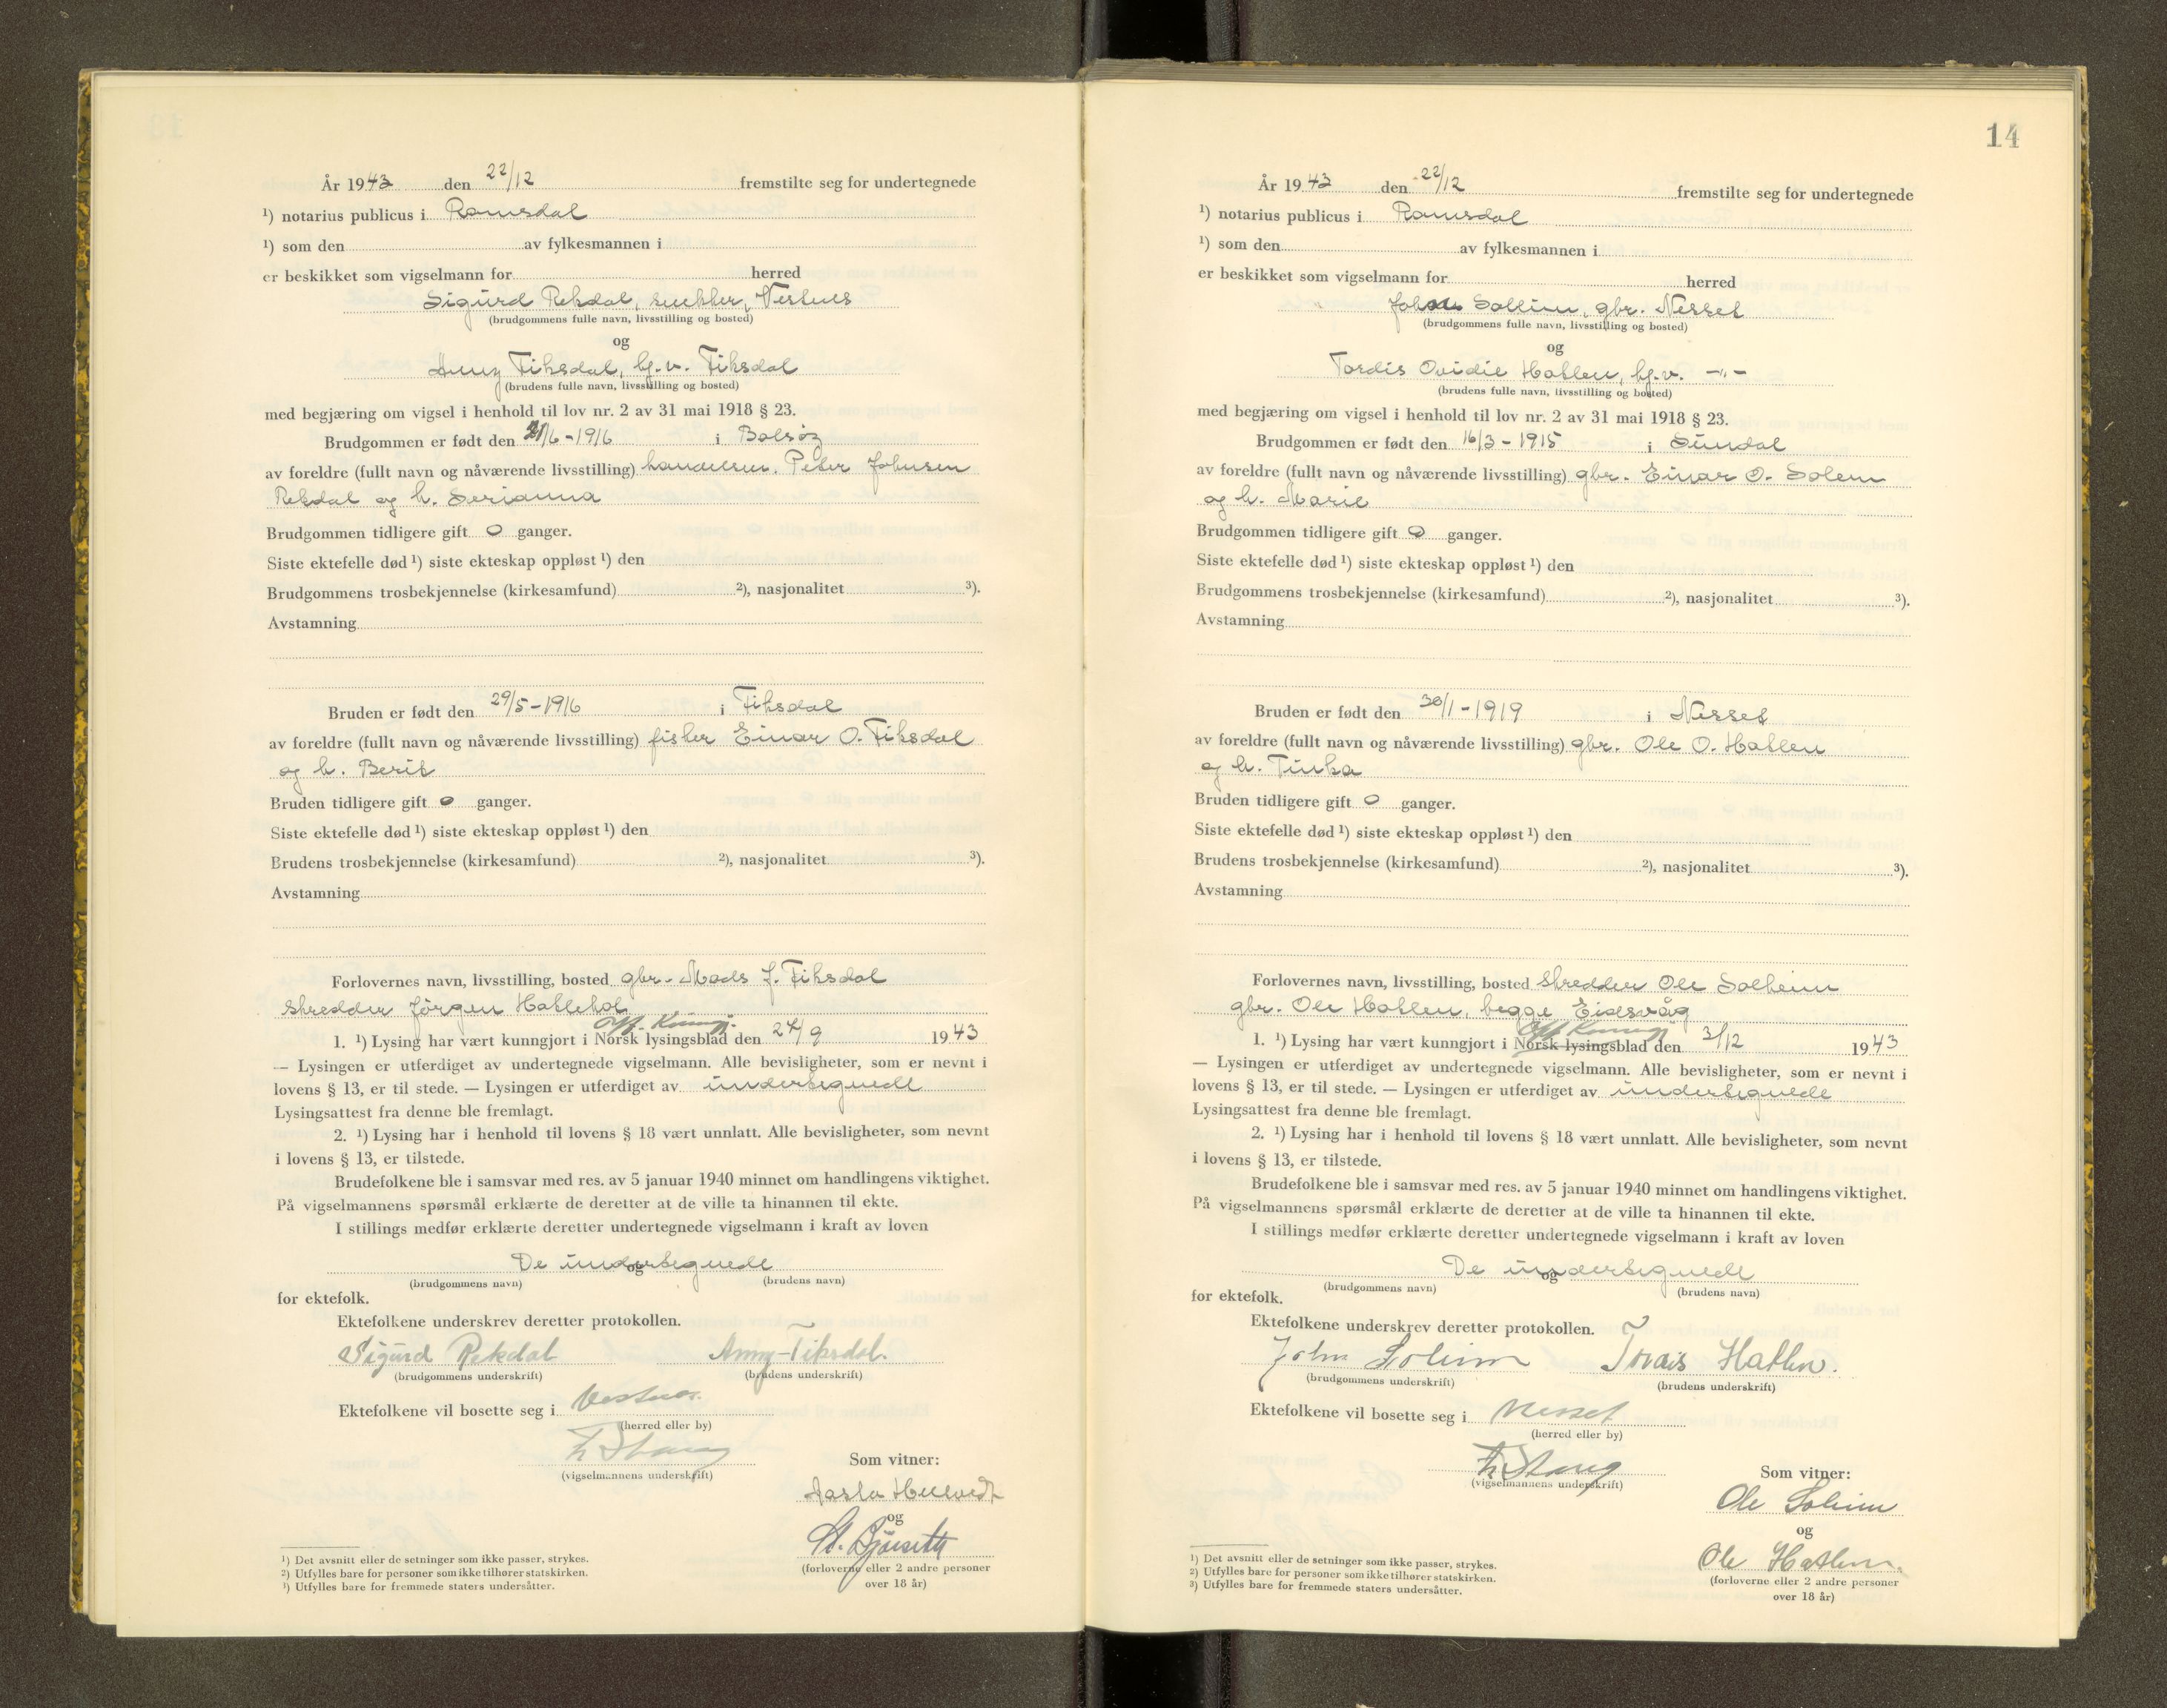 År 1943 den 22/12 fremstilte seg for undertegnede
¹) notarius publicus i Romsdal
¹) som den av fylkesmannen i
er beskikket som vigselmann for herred
Sigurd Rekdal, snekker, Vestnes
(brudgommens fulle navn, livsstilling og bosted)
og
Anny Fiksdal, hj.v. Fiksdal
(brudens fulle navn, livsstilling og bosted)
med begjæring om vigsel i henhold til lov nr. 2 av 31 mai 1918 § 23.
Brudgommen er født den /6-1916 i Bolsøy
av foreldre (fullt navn og nåværende livsstilling) Peter Johnsen
Rekdal og h. Serianna
Brudgommen tidligere gift 0 ganger.
Siste ektefelle død ¹) siste ekteskap oppløst ¹) den
Brudgommens trosbekjennelse (kirkesamfund) ²), nasjonalitet ³).
Avstamning
Bruden er født den 29/5-1916 i Fiksdal
av foreldre (fullt navn og nåværende livsstilling) fisker Einar O. Fiksdal
og h. Berit
Bruden tidligere gift 0 ganger.
Siste ektefelle død ¹) siste ekteskap oppløst ¹) den
Brudens trosbekjennelse (kirkesamfund) ²), nasjonalitet ³).
Avstamning
Forlovernes navn, livsstilling, bosted gbr. Mads J. Fiksdal
skredder Jørgen
Off. Kunngj.
1. ¹) Lysing har vært kunngjort i Norsk lysingsblad den 24/9 1943
— Lysingen er utferdiget av undertegnede vigselmann. Alle bevisligheter, som er nevnt i
lovens § 13, er til stede. — Lysingen er utferdiget av undertegnede
Lysingsattest fra denne ble fremlagt.
2. ¹) Lysing har i henhold til lovens § 18 vært unnlatt. Alle bevisligheter, som nevnt
i lovens § 13, er tilstede.
Brudefolkene ble i samsvar med res. av 5 januar 1940 minnet om handlingens viktighet.
På vigselmannens spørsmål erklærte de deretter at de ville ta hinannen til ekte.
I stillings medfør erklærte deretter undertegnede vigselmann i kraft av loven
De undertegnede
og
(brudgommens navn) (brudens navn)
for ektefolk.
Ektefolkene underskrev deretter protokollen.
Sigurd Rekdal Anny Fiksdal.
(brudgommens underskrift) (brudens underskrift)
Ektefolkene vil bosette seg i Vestnes.
(herred eller by)
Stang
(vigselmannens underskrift)
Som vitner:
og
(forloverne eller 2 andre personer
over 18 år)
¹) Det avsnitt eller de setninger som ikke passer, strykes.
²) Utfylles bare for personer som ikke tilhører statskirken.
³) Utfylles bare for fremmede staters undersåtter.
14
År 1943 den 22/12 fremstilte seg for undertegnede
¹) notarius publicus i Romsdal
¹) som den av fylkesmannen i
er beskikket som vigselmann for herred
John Solliim, gbr. Nesset
(brudgommens fulle navn, livsstilling og bosted)
og
Tordis Ovidie Hatlen, hj.v. -"-
(brudens fulle navn, livsstilling og bosted)
med begjæring om vigsel i henhold til lov nr. 2 av 31 mai 1918 § 23.
Brudgommen er født den 16/3-1915 i Sundal
av foreldre (fullt navn og nåværende livsstilling) gbr. Einar O. Solem
og h. Marie
Brudgommen tidligere gift 0 ganger.
Siste ektefelle død ¹) siste ekteskap oppløst ¹) den
Brudgommens trosbekjennelse (kirkesamfund) ²), nasjonalitet ³).
Avstamning
Bruden er født den 30/1-1919 i Nesset
av foreldre (fullt navn og nåværende livsstilling) gbr. Ole O. Hatlen
og h. Tinka
Bruden tidligere gift 0 ganger.
Siste ektefelle død ¹) siste ekteskap oppløst ¹) den
Brudens trosbekjennelse (kirkesamfund) ²), nasjonalitet ³).
Avstamning
Forlovernes navn, livsstilling, bosted skredder Ole Solheim
gbr. Ole Hatlen, begge Eidsvåg
Off Kunngj
1. ¹) Lysing har vært kunngjort i Norsk lysingsblad den 3/12 1943
— Lysingen er utferdiget av undertegnede vigselmann. Alle bevisligheter, som er nevnt i
lovens § 13, er til stede. — Lysingen er utferdiget av undertegnede
Lysingsattest fra denne ble fremlagt.
2. ¹) Lysing har i henhold til lovens § 18 vært unnlatt. Alle bevisligheter, som nevnt
i lovens § 13, er tilstede.
Brudefolkene ble i samsvar med res. av 5 januar 1940 minnet om handlingens viktighet.
På vigselmannens spørsmål erklærte de deretter at de ville ta hinannen til ekte.
I stillings medfør erklærte deretter undertegnede vigselmann i kraft av loven
De undertegnede
og
(brudgommens navn) (brudens navn)
for ektefolk.
Ektefolkene underskrev deretter protokollen.
John Soliim Tordis Hatlen.
(brudgommens underskrift) (brudens underskrift)
Ektefolkene vil bosette seg i Nesset
(herred eller by)
Stang
(vigselmannens underskrift)
Som vitner:
Ole Soliim
og
Ole Hatlen.
(forloverne eller 2 andre personer
over 18 år)
¹) Det avsnitt eller de setninger som ikke passer, strykes.
²) Utfylles bare for personer som ikke tilhører statskirken.
³) Utfylles bare for fremmede staters undersåtter.